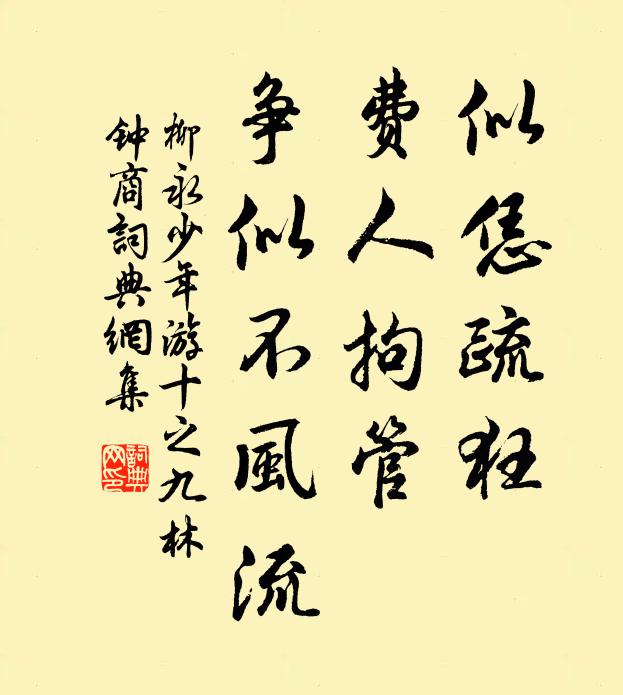 似恁疏狂
費人拘管
争似不風流
柳永少年游十之九林
钟商詞典網集
詞典
网印